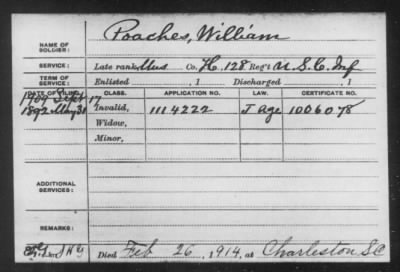 Poaches, William
NAME OF SOLDIER:
SERVICE: Late rank Mus Co. H, 128 Reg't U.S.C. Inf
TERM OF SERVICE: Enlisted , 1 Discharged , 1
DATE OF FILING. CLASS. APPLICATION NO. LAW. CERTIFICATE NO.
1909 Sept 17
1892 May 31 Invalid, 1114222 J Age 1006078
Widow,
Minor,
ADDITIONAL SERVICES:
REMARKS:
Died Feb 26, 1914, at Charleston SC